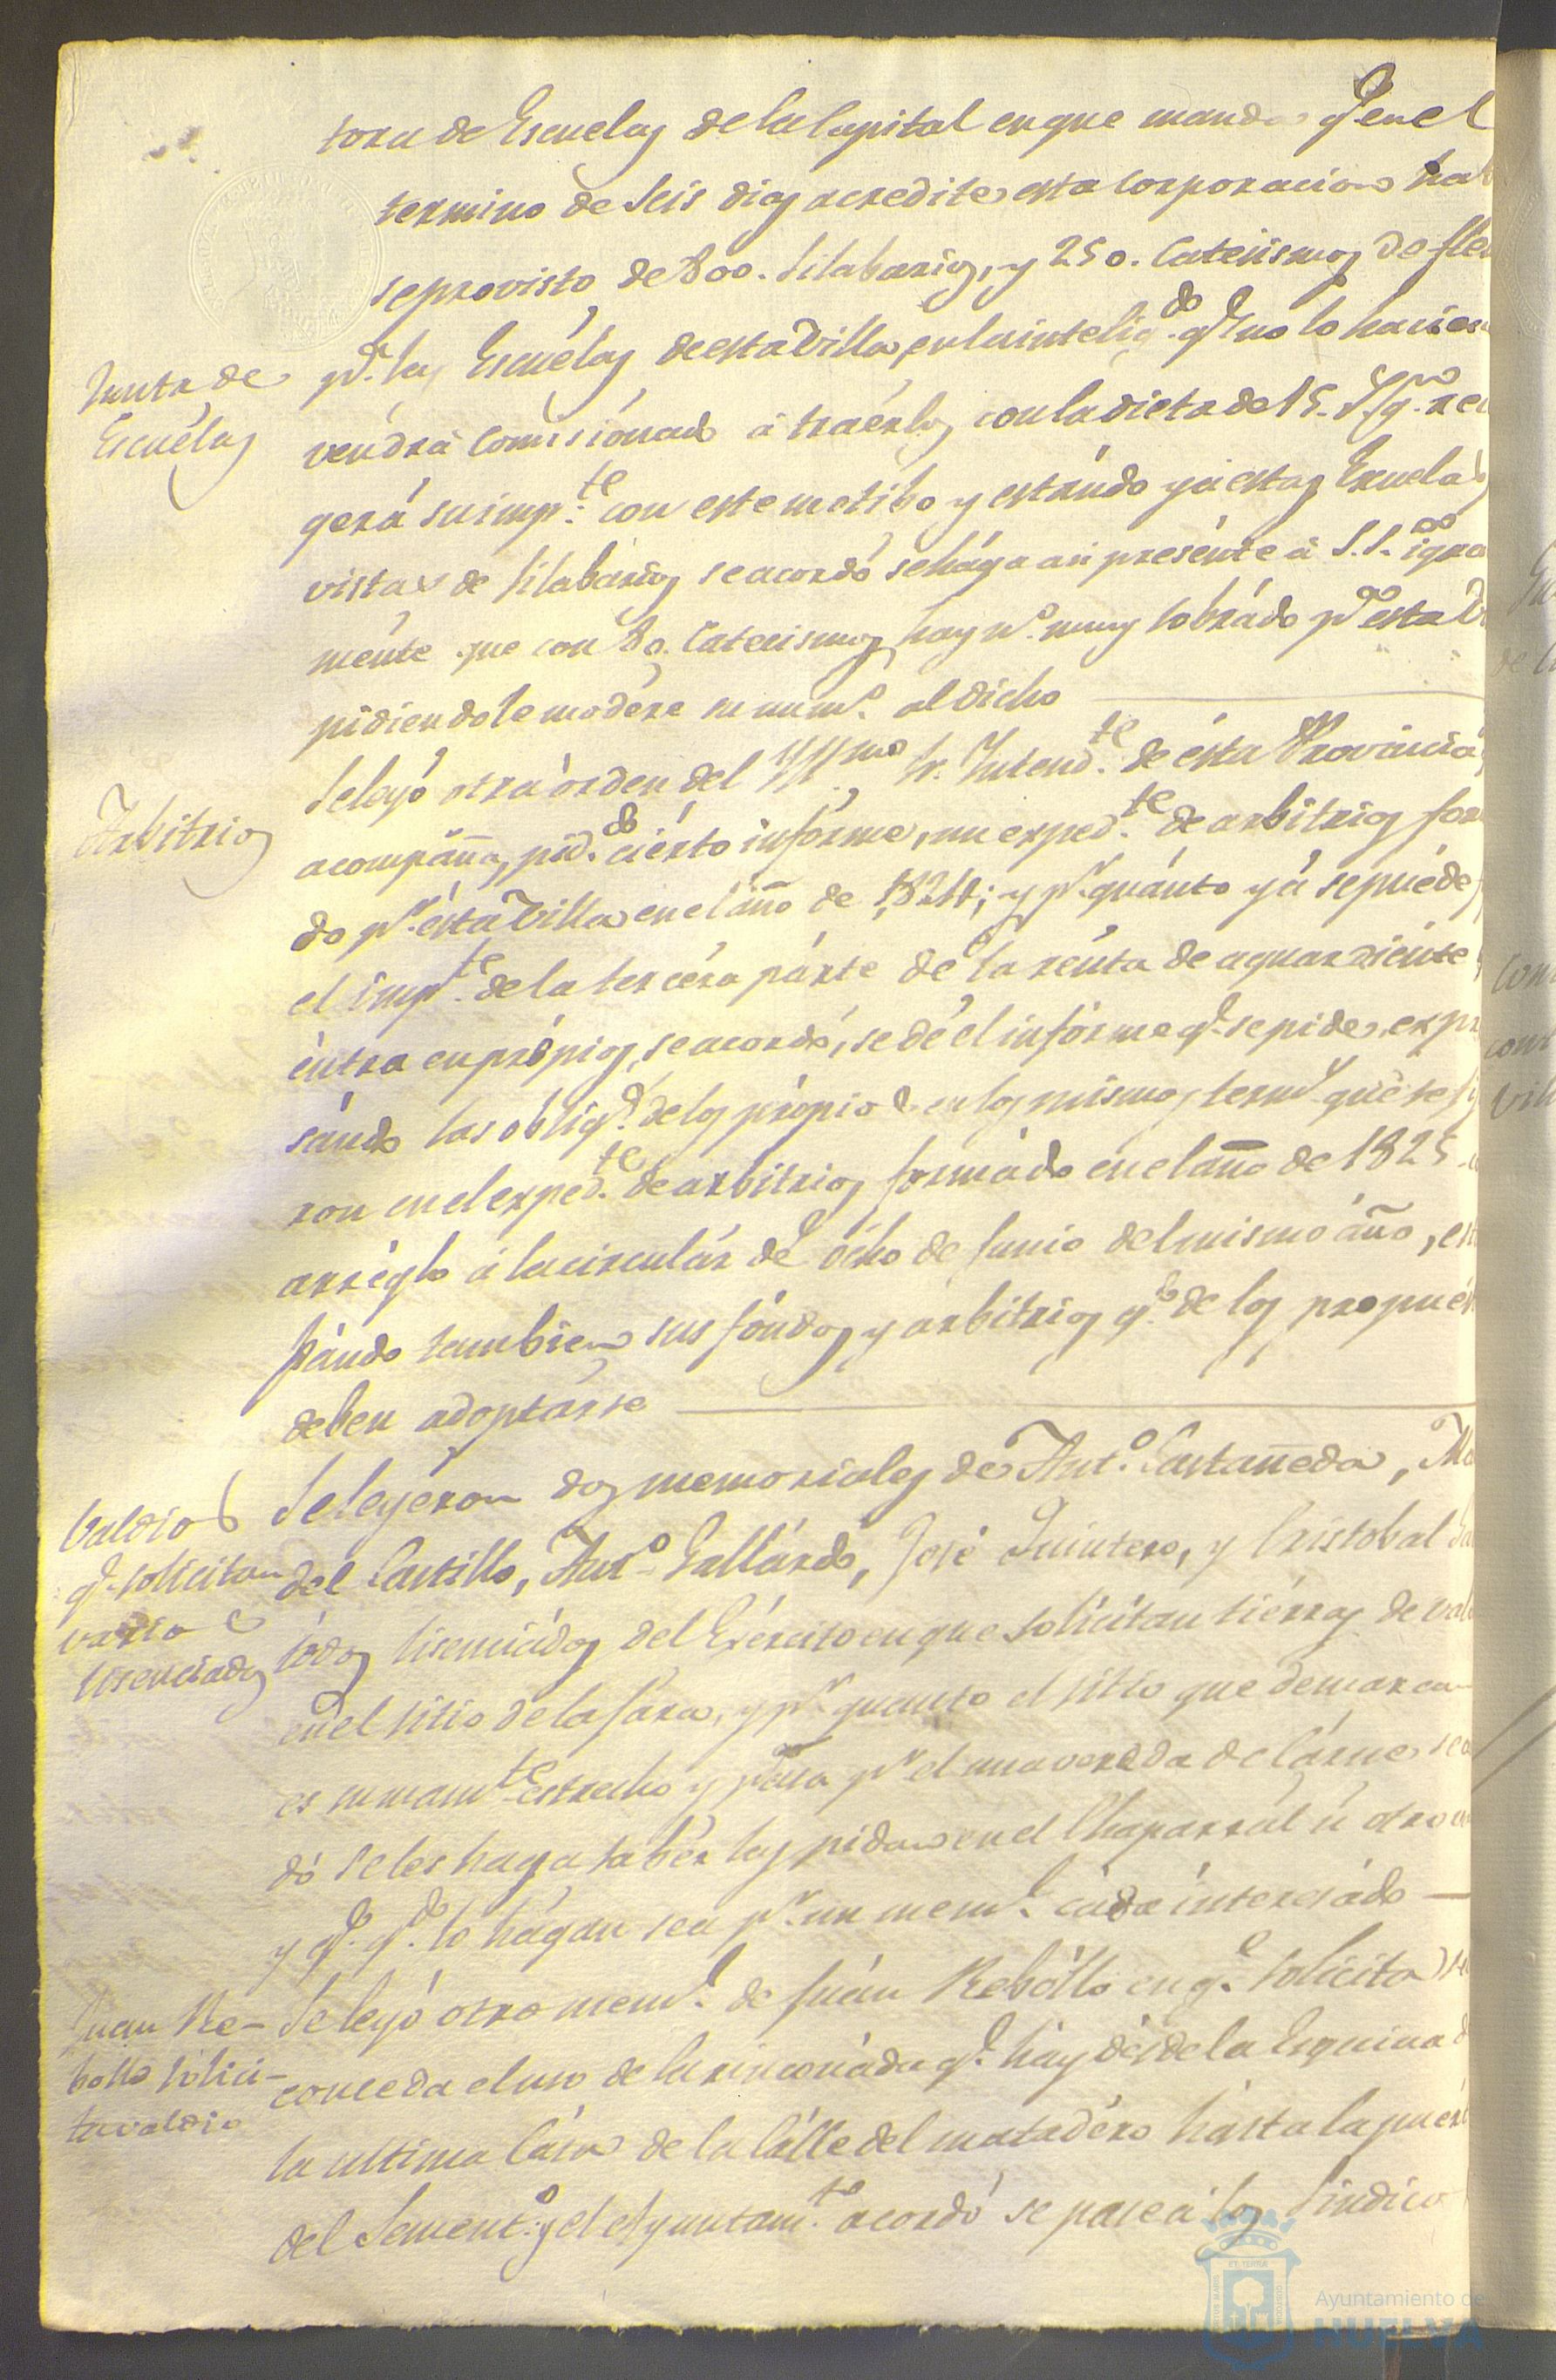 tora de Escuelas de la Capital en que manda q.e en el
termino de Seis dias acredite esta Corporacion hab
se provisto de 800. Silabarios, y 250. Catecismos de Fleu
Junta de
Escuelas
p.a las Escuelas de esta Villa, en la intelig.a q.e no lo hacien.do
vendrá Comisionado á traérlos con la dieta de 15. r.s q.n
gerá su imp.te con este motibo y estándo yá estas Escuelas
vistas de Silabários se acordó se hága asi presénte á S.S. igual
ménte que con 80. Catecismos hay n.o muy sobrádo p.a esta
pidiendole modére su num.o al dicho
Arbitrios
Se leyó otra órden del Yll.mo Sr. Intend.te de ésta Provincia
acompañna, pid.do ciérto infórme, un exped.te de arbitrios for
do p.r ésta Villa en el anño de 1824; y p.r quánto yá se puéde
el imp.te de la tercéra párte de la rénta de aguardiénte
éntra en própios, se acordó, se dé el infórme q.e se pide, expre
sándo las óblig.s de los própios en los mismos term.s que se
ron en el exped.te de arbitrios formádo en el anño de 1825
arréglo á la circulár de ócho de Junio del mismo áño, es
pándo tambien sus fóndos y arbitrios q.e de los propués
deben adoptárse
Valdios
q.e solicitan
varios
lisenciados
Se leyéron dos memoriales de Ant.o Castañneda, Ma
del Castillo, Ant.o Gallárdo, José Quintero, y Cristobal
tódos lisenciádos del Exército en que solicitan tiérras de vald
en el sitio de la Jara, y p.r quanto el sitio que demarcan
es sumam.te estrecho y pasa p.r el una veréda de Cárne
dó se les haga sabér las pidan en el Chaparrál ú otro
y q.e q.do lo hágan sea p.r un mem.l cáda interesádo
Juan Re-
bollo solici-
ta valdio
Se leyó otro mem.l de Juán Rebóllo en q.e solicita se
conceda el uso de la rinconáda q.e háy désde la Esquina d
la ultima Cása de la Cálle del matadéro hásta la puér
del Sement.o y el Ayuntam.to acordó se pase á los Sindico
Ayuntamiento de
HUELVA